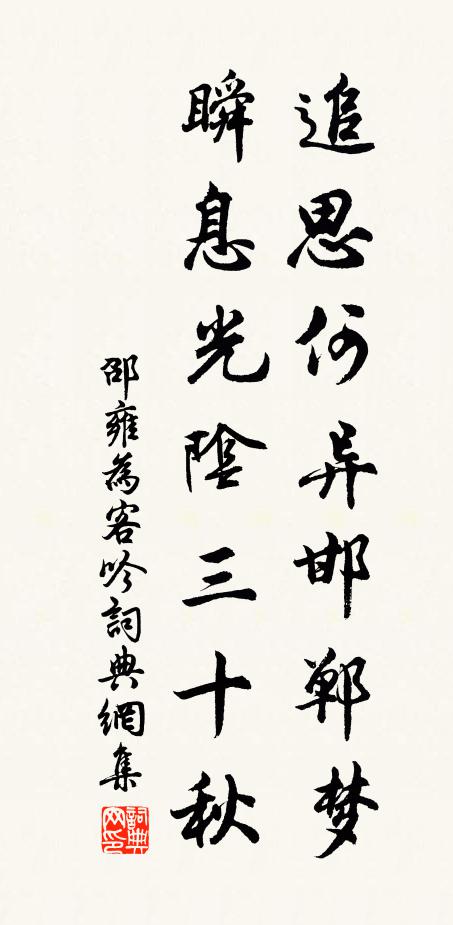 追思何异邯郸梦
瞬息光陰三十秋
邵雍為客吟詞典網集
詞典
网印